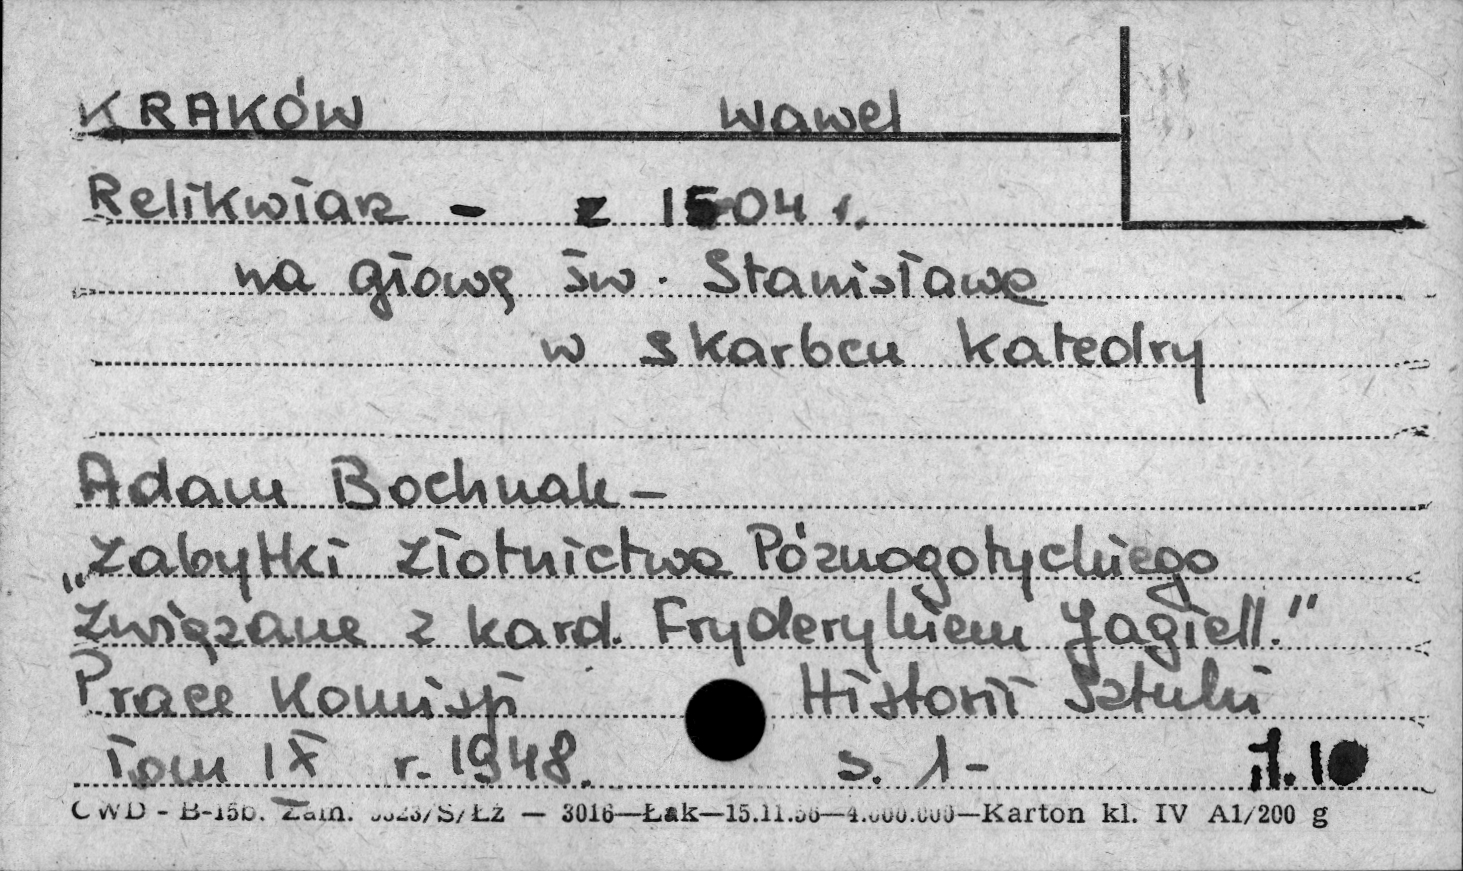 KRAKÓW Wawel
Relikwiarz - z 1504 r.
na głowę św. Stanisława
w skarbcu Katedry
Adam Bochnak -
„Zabytki złotnictwa Późnogotyckiego
Związane z kard. Fryderykiem Jagiell.”
Prace Komisji Historii Sztuki
Tom IX r. 1948. s. 1-
CWD - B-15b. Zam. /S/Łż — 3016—Łak—15.11.56—4.000.000—Karton kl. IV A1/200 g